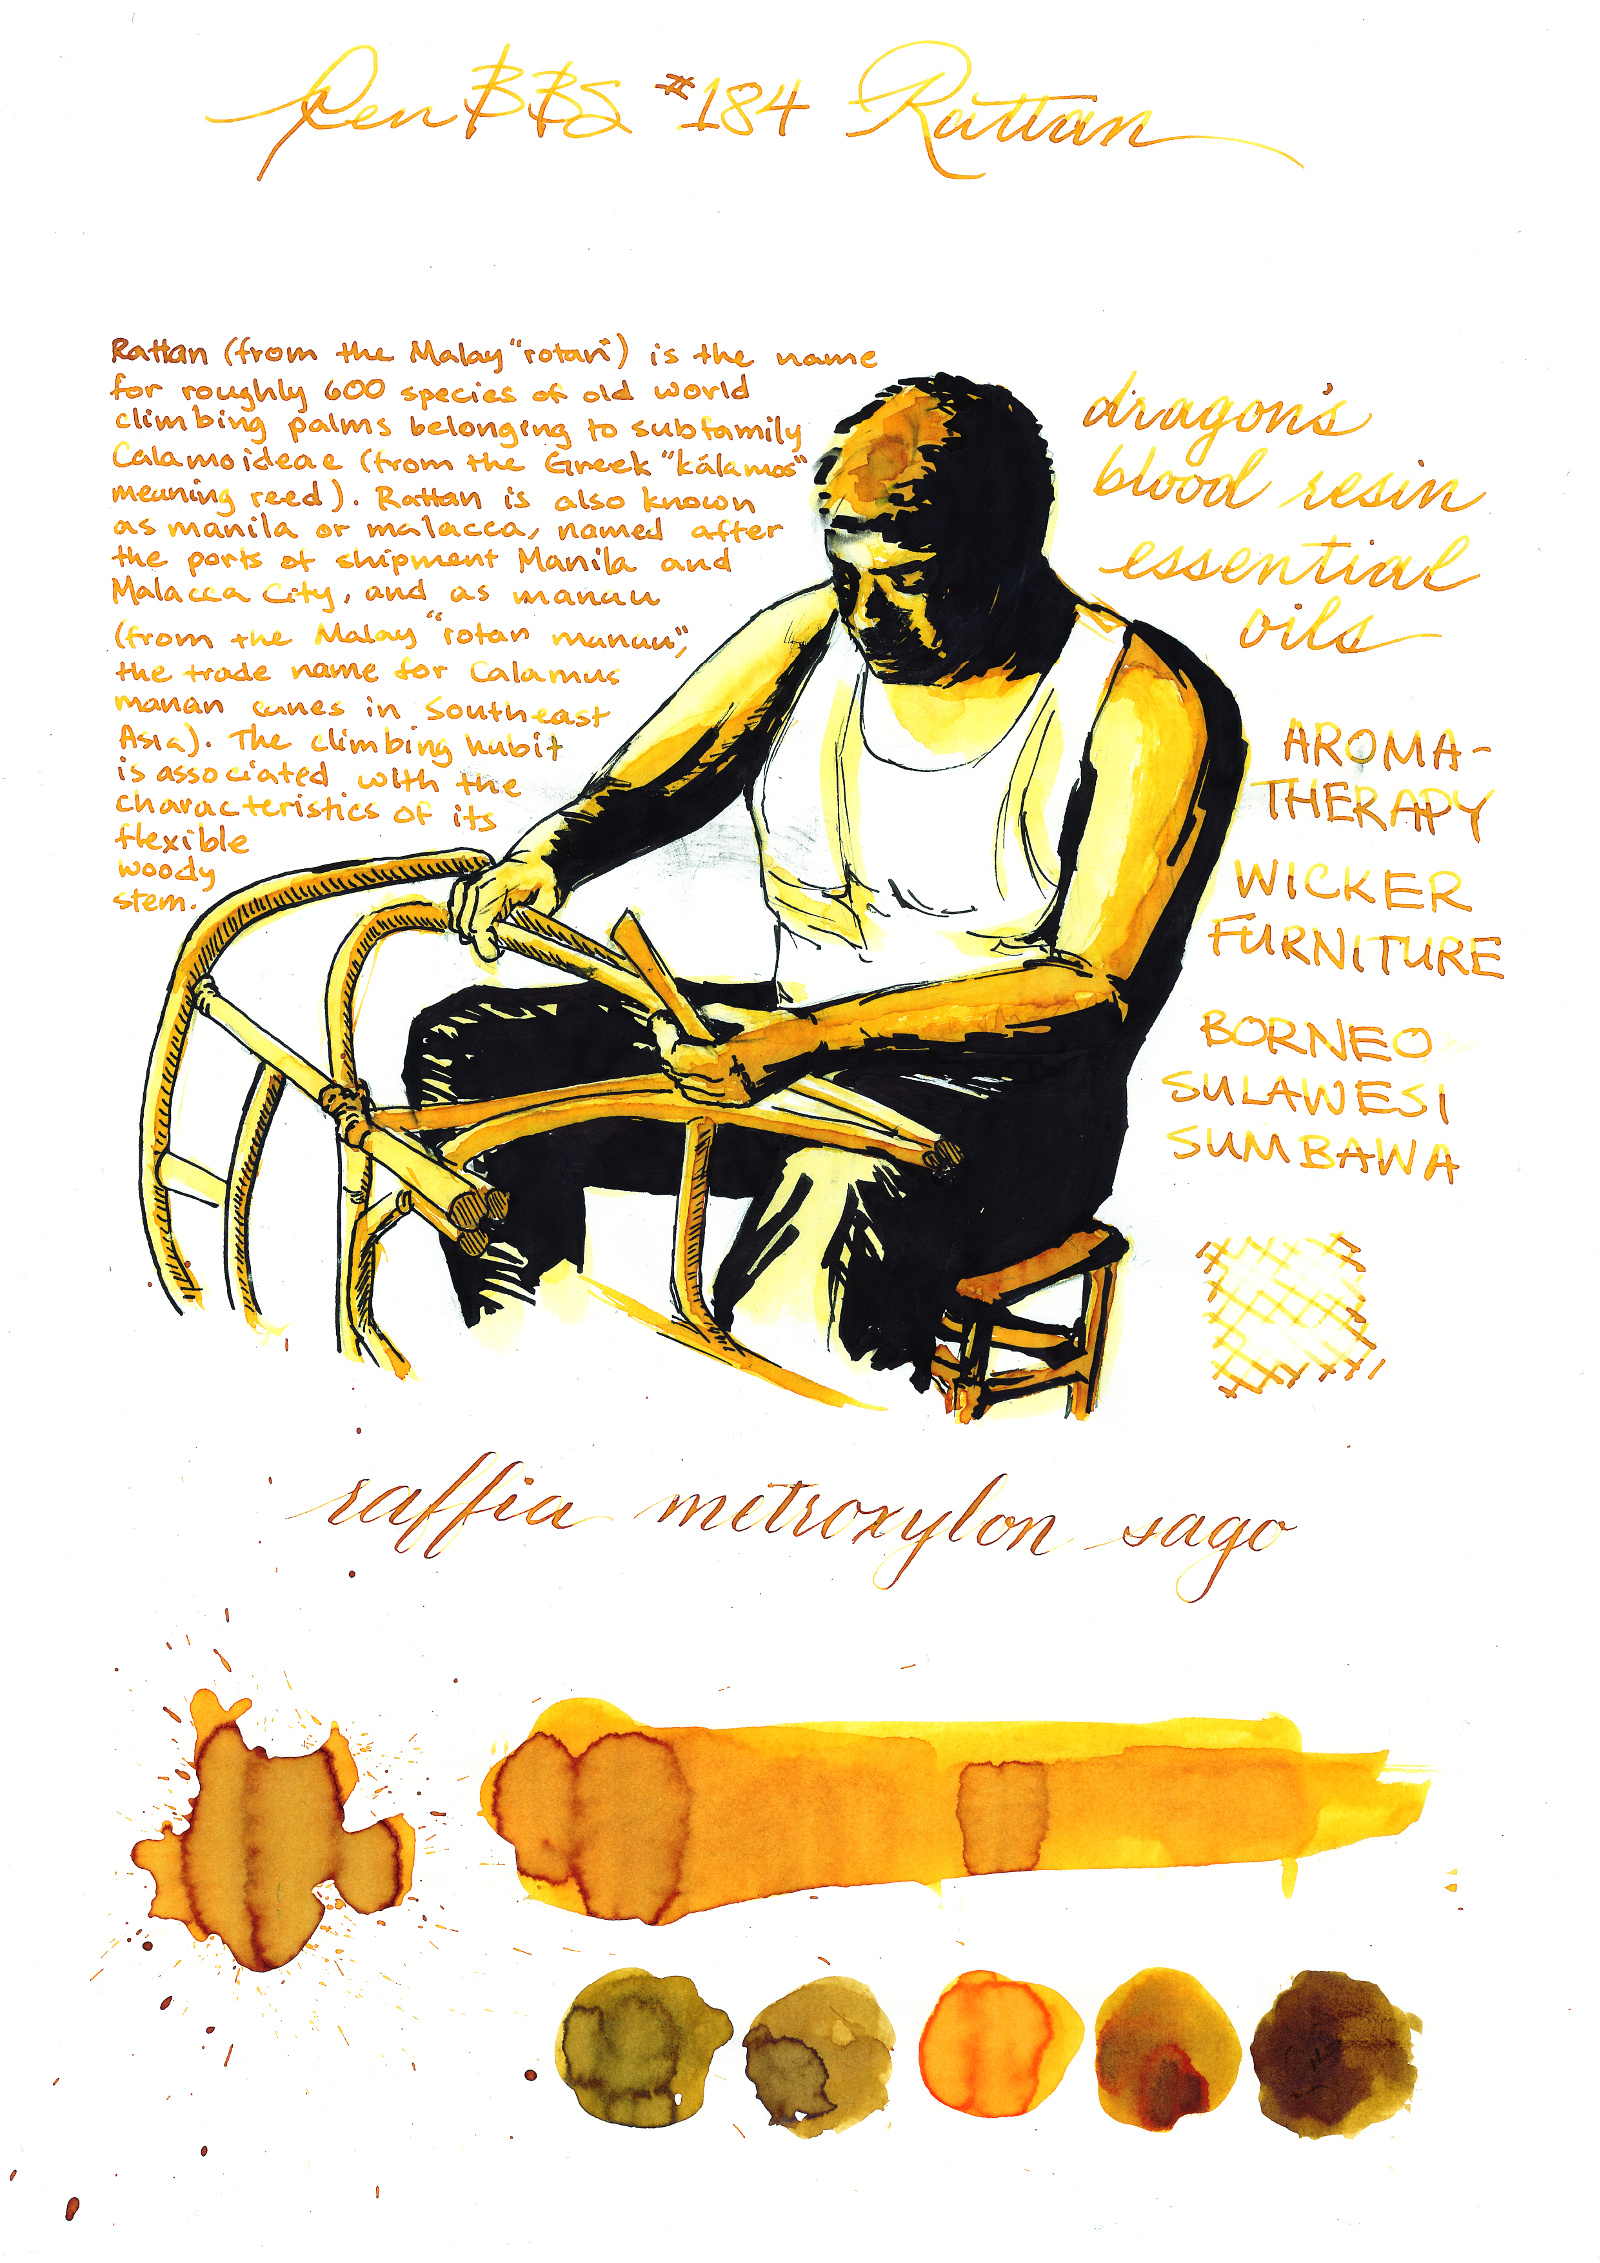 PenBBS #184 Rattan
Rattan (from the Malay "rotan") is the name
for roughly 600 species of old world
climbing palms belonging to subfamily
Calamoideae (from the Greek "kálamos"
meaning reed). Rattan is also known
as manila or malacca, named after
the ports of shipment Manila and
Malacca City, and as manau
(from the Malay "rotan manau",
the trade name for Calamus
manan canes in Southeast
Asia). The climbing habit
is associated with the
characteristics of its
flexible
woody
stem.
dragon's
blood resin
essential
oils
AROMA-
THERAPY
WICKER
FURNITURE
BORNEO
SULAWESI
SUMBAWA
raffia metroxylon sago